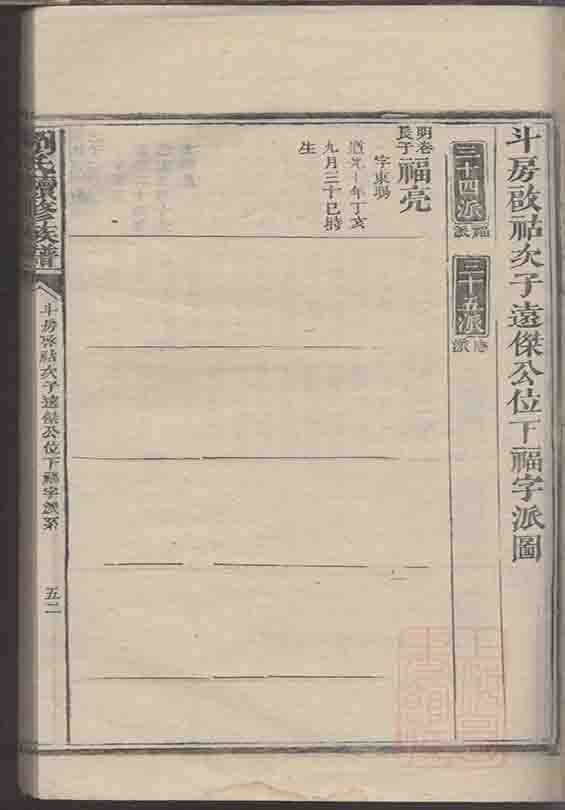 斗房啟祜次子遠傑公位下福字派圖
三十四派
福派
三十五派
派
明卷
長子
福亮
字東陽
道光十年丁亥
九月三十巳時
生
劉氏續修族譜
斗房啟祜次子遠傑公位下福字派系
五二